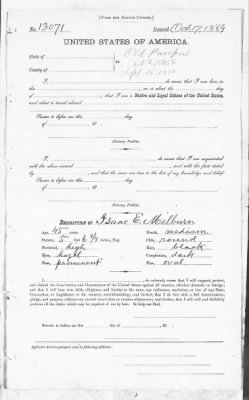 [FORM FOR NATIVE CITIZEN.]
No. 13071 Issued Oct. 17, 1884
UNITED STATES OF AMERICA.
State of Old Passport
County of
I, do swear that I was born in
the on or about the day
of that I am a Native and Loyal Citizen of the United States,
and about to travel abroad.
Sworn to before me this day
of 18
Notary Public.
I, do swear that I am acquainted
with the above-named and with the facts
stated by and that the same are true to the best of my knowledge and belief.
Sworn to before me this day
of 18
Notary Public.
DESCRIPTION OF Isaac E. Milburn
Age, 45 years. Mouth, medium
Stature, 5 feet inches, Eng. Chin, round
Forehead, high Hair, black
Eyes, hazel Complexion, dark
Nose, prominent Face, oval
I, do solemnly swear that I will support, protect,
and defend the Constitution and Government of the United States against all enemies, whether domestic or foreign;
and that I will bear true faith, allegiance, and loyalty to the same, any ordinance, resolution, or law of any State,
Convention, or Legislature to the contrary notwithstanding; and further, that I do this with a full determination,
pledge, and purpose, without any mental reservation or evasion whatsoever; and further, that I will well and faithfully
perform all the duties which may be required of me by law. So help me God.
Sworn to before me this day of 18
Notary Public.
Applicant desires passport to be sent to